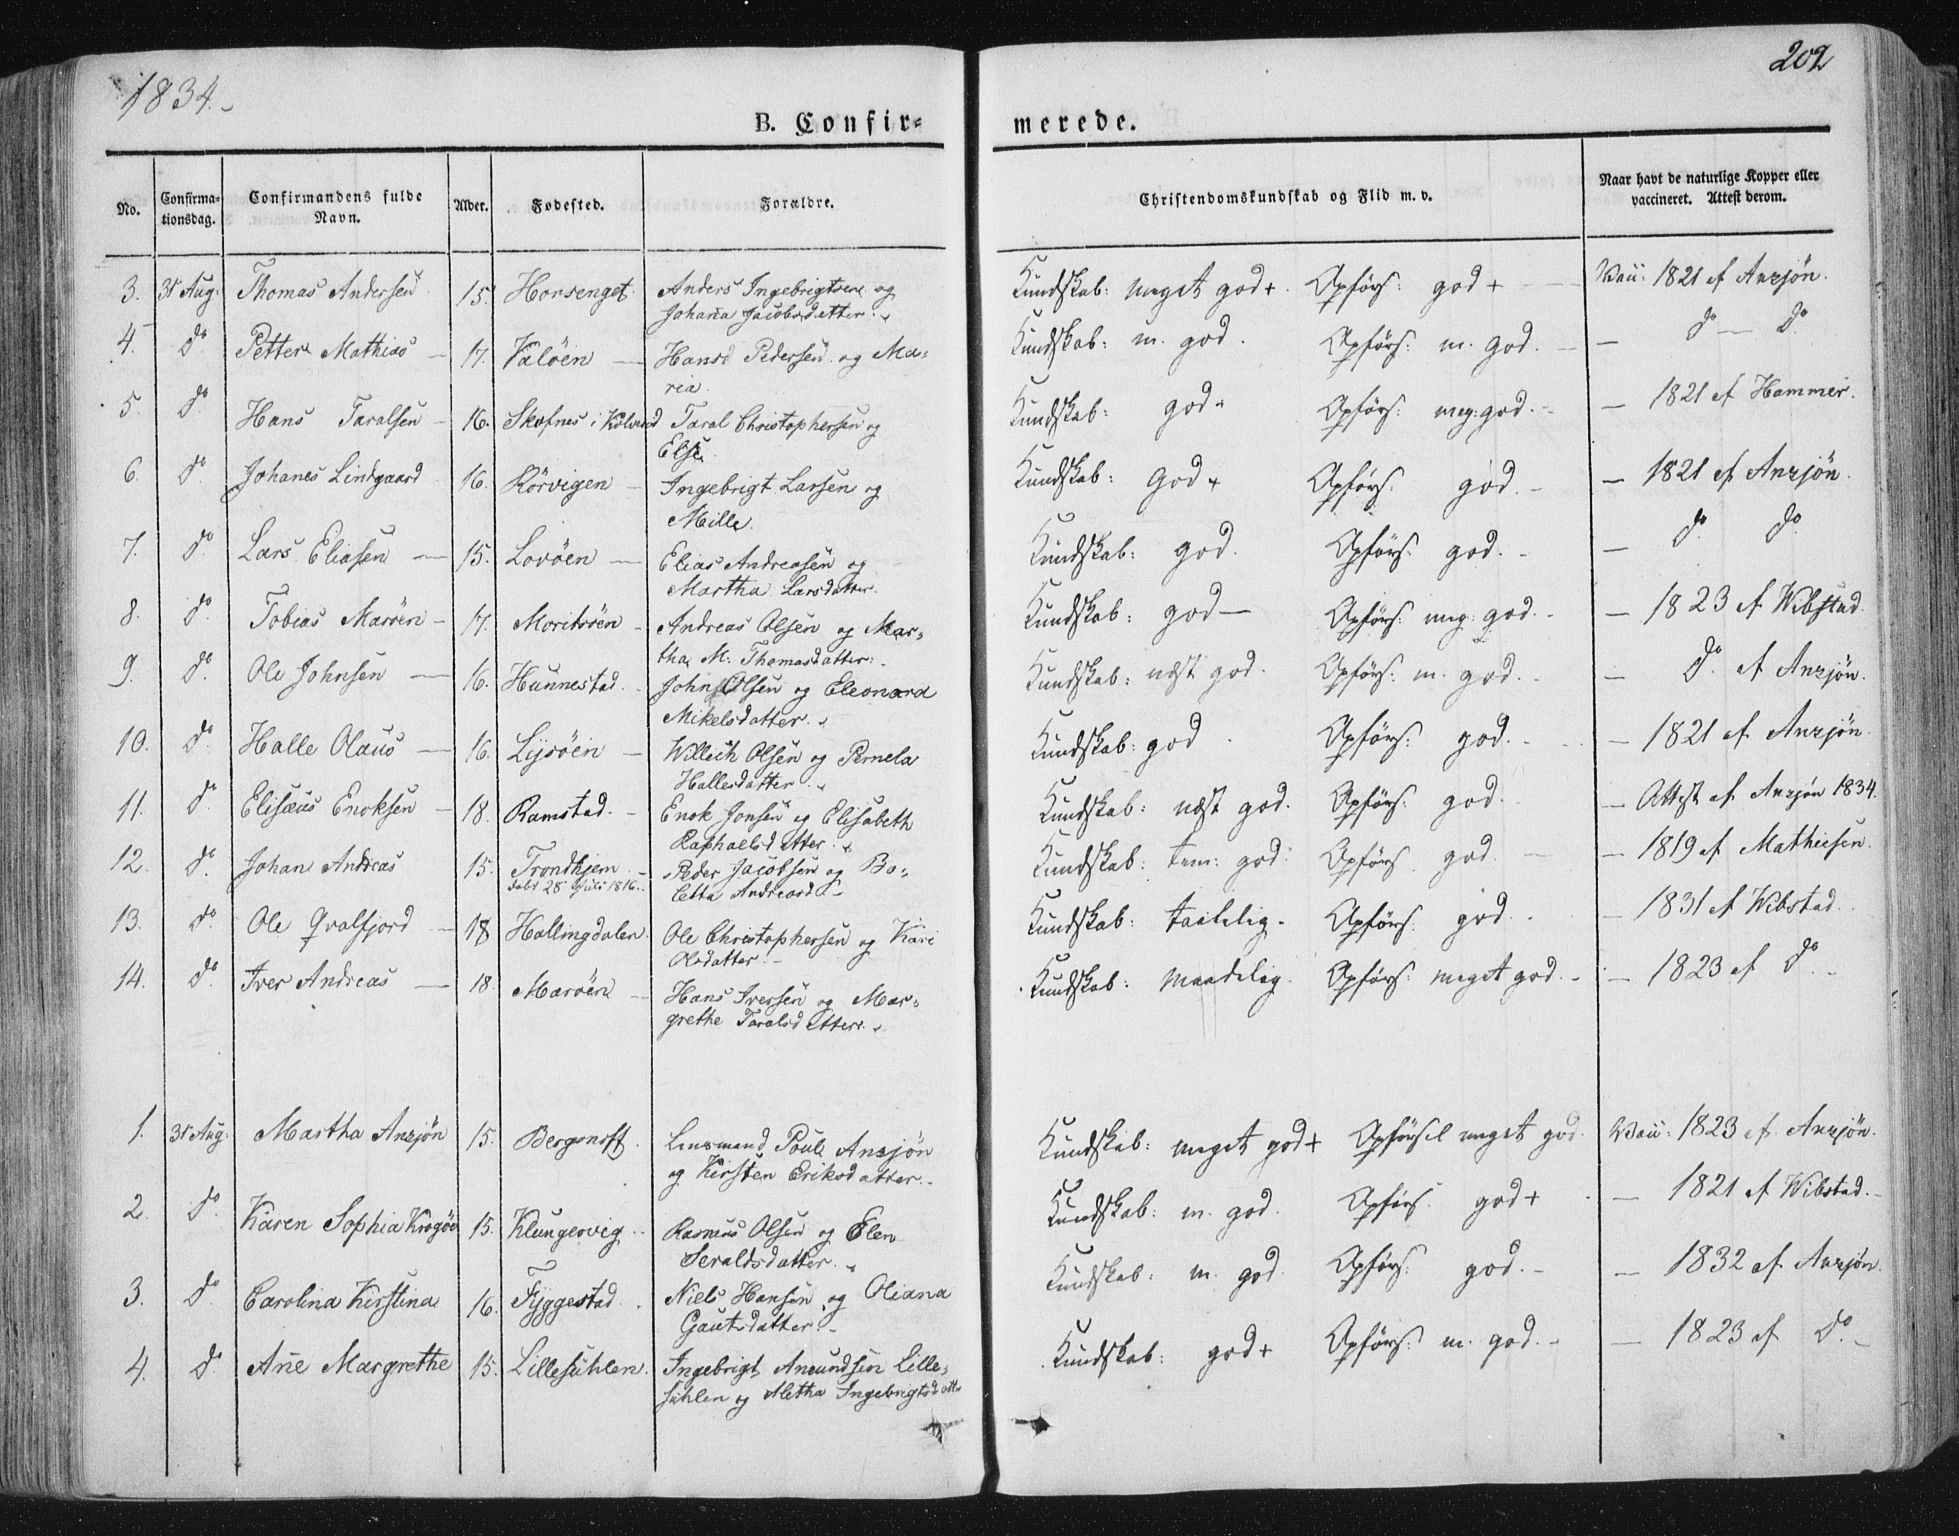 1834.
202
B. Confirmerede.
No. Confirmationsdag. Confirmandens fulde Navn. Alder. Fødested. Forældre. Christendomskundskab og Flid m. v. Naar havt de naturlige Kopper eller vaccineret. Attest derom.
3. 31 Aug: Thomas Andersen 15 Horsenget Anders Ingebrigtsen og Kundskab: meget god+. Opførs: god+ Vacc: 1821 af Anzjøn.
Johana Jacobsdatter.
4. do Petter Mathias 17. Valöen Hans Pedersen og Ma- Kundskab: m. god. Opførs: m. god. — do — do
ria.
5. do Hans Taralsen 16. Skofnes i Kolvered Taral Christophersen og Kundskab: god+ Opførs: meg: god. — 1821 af Hammer.
Else.
6. do Johanes Lindgaard 16. Rörvigen Ingebrigt Larsen og Kundskab: God+ Opførs: god. — 1821 af Anzjøn.
Mille.
7. do Lars Eliasen 15. Lovöen Elias Andreasen og Kundskab: god. Opførs: god. — do do
Martha Larsdatter.
8. do Tobias Maröen 17. Moritsöen Andreas Olsen og Mar- Kundskab: god— Opførs: meg: god. — 1823 af Wibstad.
tha M: Thomasdatter.
9. do Ole Johnsen 16. Hunnestad. John Olsen og Eleonora Kundskab: næst god. Opførs: m. god. — do af Anzjøn.
Mikelsdatter.
10. do Halle Olaus 16. Lysöen Willech Olsen og Pernela Kundskab: god. Opførs: god. — 1821 af Anzjøn
Hallesdatter.
11. do Elisæus Enoksen 18. Ramstad. Enok Jonsen og Elisabeth Kundskab: næst god. Opførs: god. — Attest af Anzjøn 1834.
Raphaelsdatter.
12. do Johan Andreas 15. Trondhjem Peder Jacobsen og Bo- Kundskab: tem: god. Opførs god. — 1819 af Mathiesen.
døbt 28 Juli 1816. letta Andreasd
13. do Ole Qvalfjord 18 Hallingdalen. Ole Christophersen og Kari Kundskab: taalelig. Opførs: god. — 1831 af Wibstad.
Olsdatter.
14. do Iver Andreas 18. Maröen Hans Iversen og Mar- Kundskab: maadelig. Opførs: meget god. — 1823 af do
grethe Taralsdatter.
1. 31 Aug: Martha Anzjøn 15. Bergsnoff. Lensmand Poul Anzjøn Kundskab: meget god+ Opførsel meget god. Vacc: 1823 af Anzjøn.
og Kirsten Eriksdatter.
2. do Karen Sophia Krogöe 15. Klungervig Rasmus Olsen og Elen Kundskab: m. god. Opførs: god+ — 1821 af Wibstad.
Seraldsdatter.
3. do Carolina Kirstina 16. Fyggestad. Niels Hansen og Oliana Kundskab: m. god. Opførs: god. — 1832 af Anzjøn.
Gautsdatter.
4. do Ane Margrethe 15. Lillesuhlen. Ingebrigt Amundsen Lille- Kundskab: god+ Opførs: m. god. — 1823 af do
suhlen og Aletha Ingebrigtsdatter